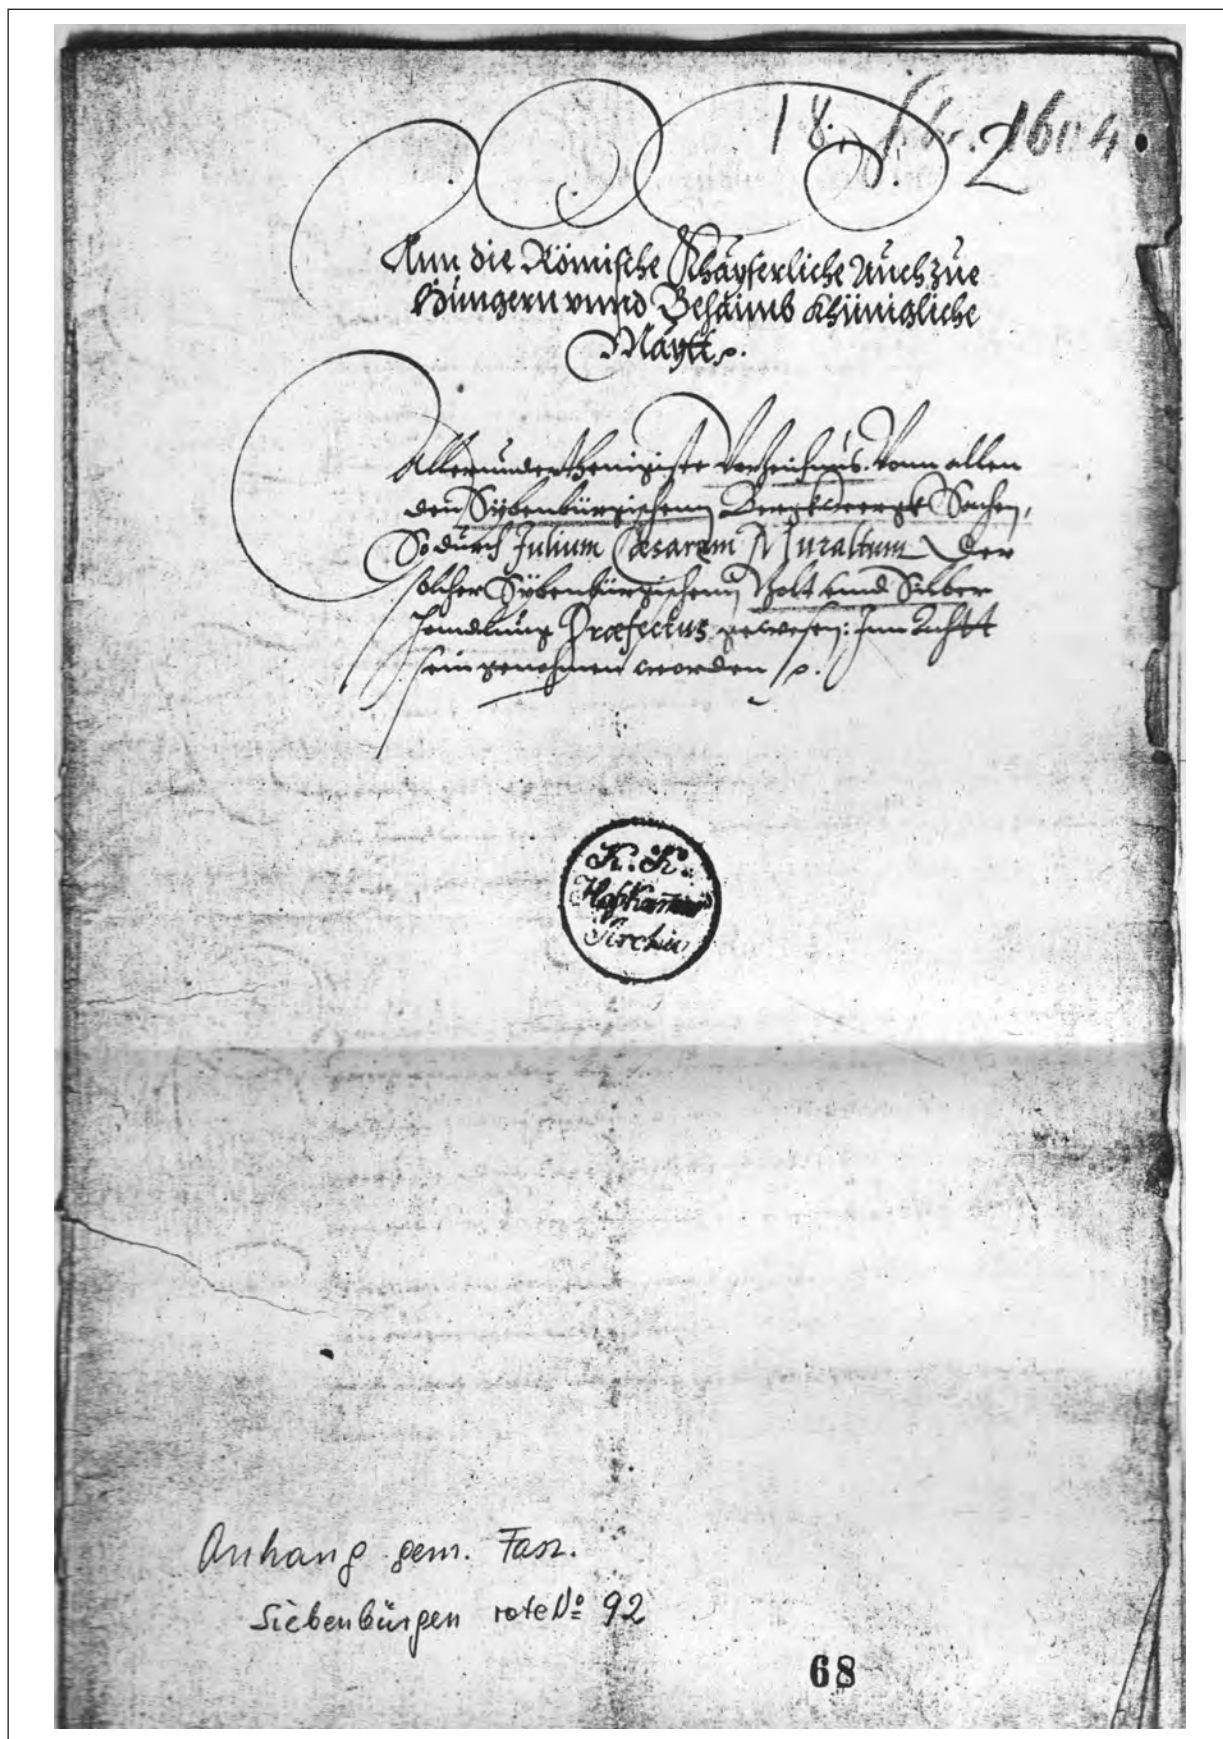 18. 1604
2
Ann die Römische Khayserliche Auch zue
Hungern vnnd Behaimb Khünigliche
Maytt.
Allerunderthenigiste Verzeichnus. Vonn allen
den Sybenbürgischenn Bergkwergk Sachen,
So durch Julium Cæsarem Muraltum Der
solcher Sybenbürgischenn Golt vnnd Silber
handlung Præfectus gewesen: Inn Achtt
sein genohmen worden
K. K.
Hofkammer
Archiv
Anhang gem. Fasz.
Siebenbürgen rote No 92
68